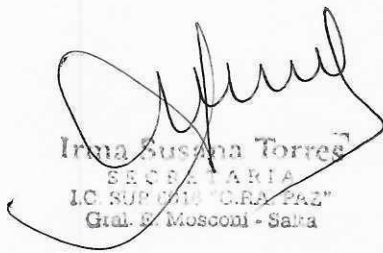 Irma Susana Torres
SECRETARIA
I.C. SUP "C.RA. PAZ"
Gral. E. Mosconi - Salta